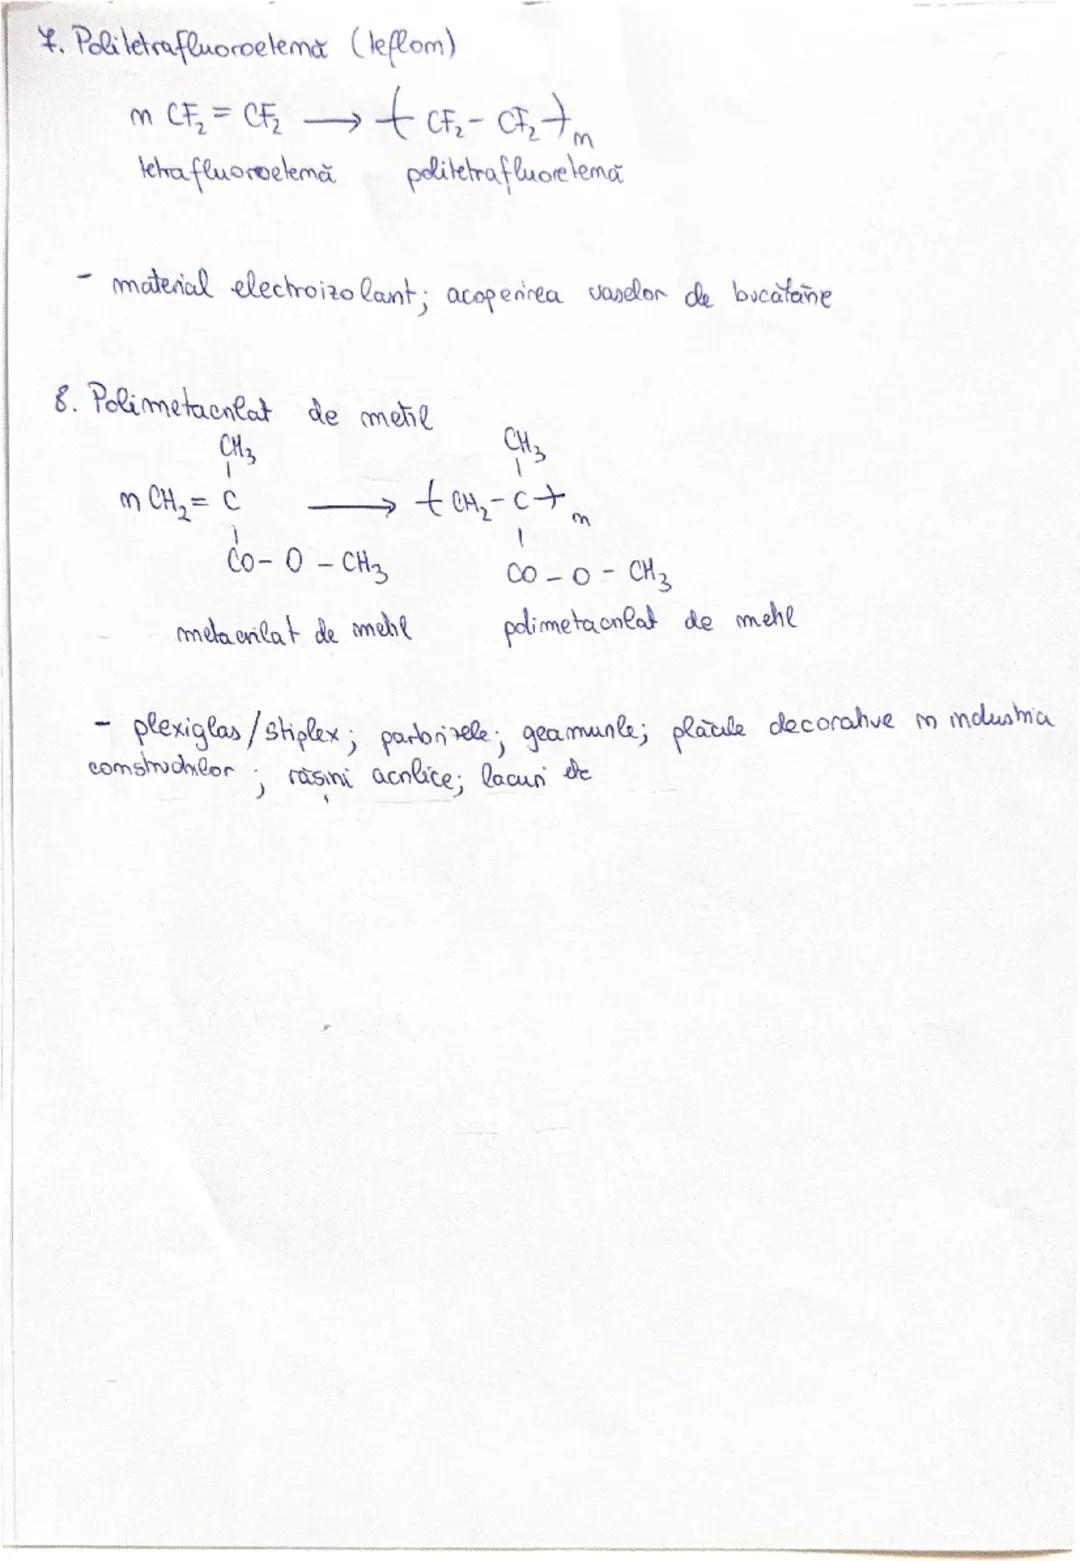 7. Politetrafluoroetenă (teflon)
n CF₂ = CF₂ → -( CF₂ - CF₂ )-n
tetrafluoroetenă politetrafluoretenă
- material electroizolant; acoperirea vaselor de bucătărie
8. Polimetacrilat de metil
CH₃ CH₃
n CH₂ = C → -( CH₂ - C )-n
CO - O - CH₃ CO - O - CH₃
metacrilat de metil polimetacrilat de metil
- plexiglas / stiplex; parbrizele; geamurile; plăcile decorative în industria
construcțiilor; rășini acrilice; lacuri etc